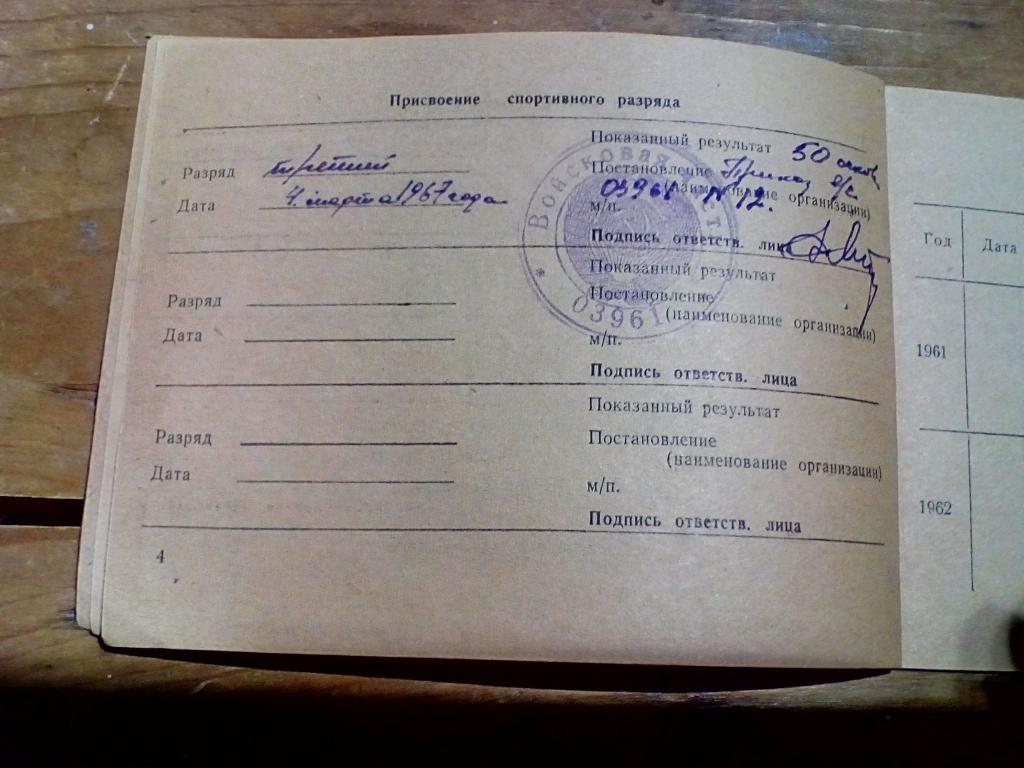 Присвоение спортивного разряда
Показанный результат 50 очков
Разряд третий
Постановление Приказ в/ч
03961 № 12.
(наименование организации)
Дата 4. марта 1967 года
м/п.
Подпись ответств. лица
Войсковая часть
* 03961
Показанный результат
Разряд
Постановление
(наименование организации)
Дата
м/п.
Подпись ответств. лица
Показанный результат
Разряд
Постановление
(наименование организации)
Дата
м/п.
Подпись ответств. лица
4
Год Дата
1961
1962